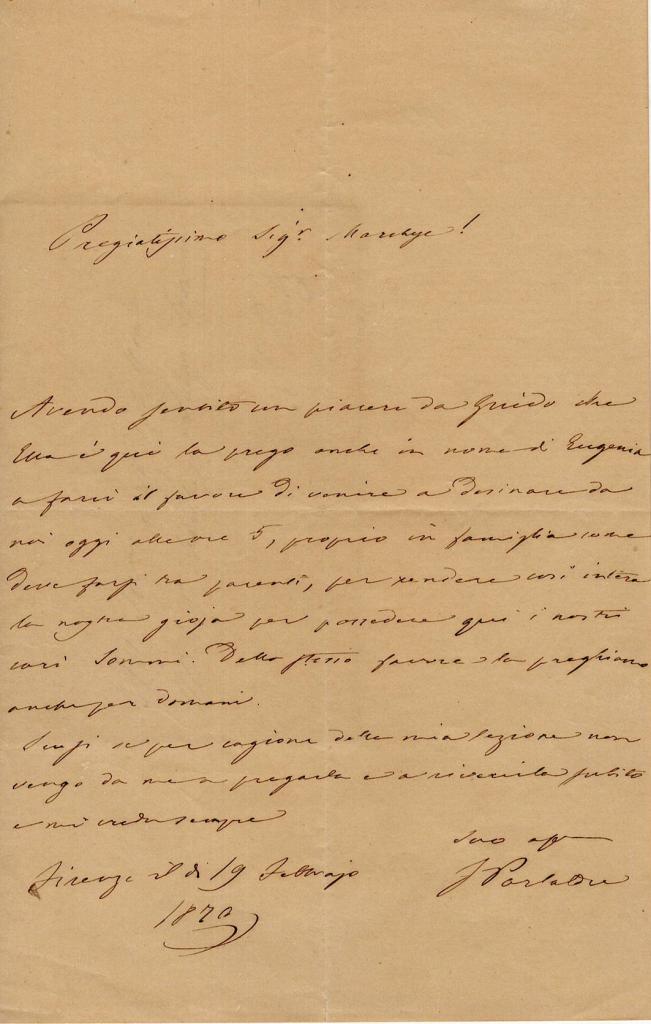 Pregiatissimo Sigr. Marchese!
Avendo sentito con piacere da Guido che
Ella è qui la prego anche in nome di Eugenia
a farci il favore di venire a desinare da
noi oggi alle ore 5, proprio in famiglia come
deve farsi tra parenti, per rendere così intera
la nostra gioja per possedere qui i nostri
cari Sommi. Dello stesso favore la preghiamo
anche per domani.
Scusi se per cagione della mia lezione non
vengo da me a pregarla e a riverirla subito
e mi creda sempre
Suo aff
Firenze il di 19 Febbrajo
1870